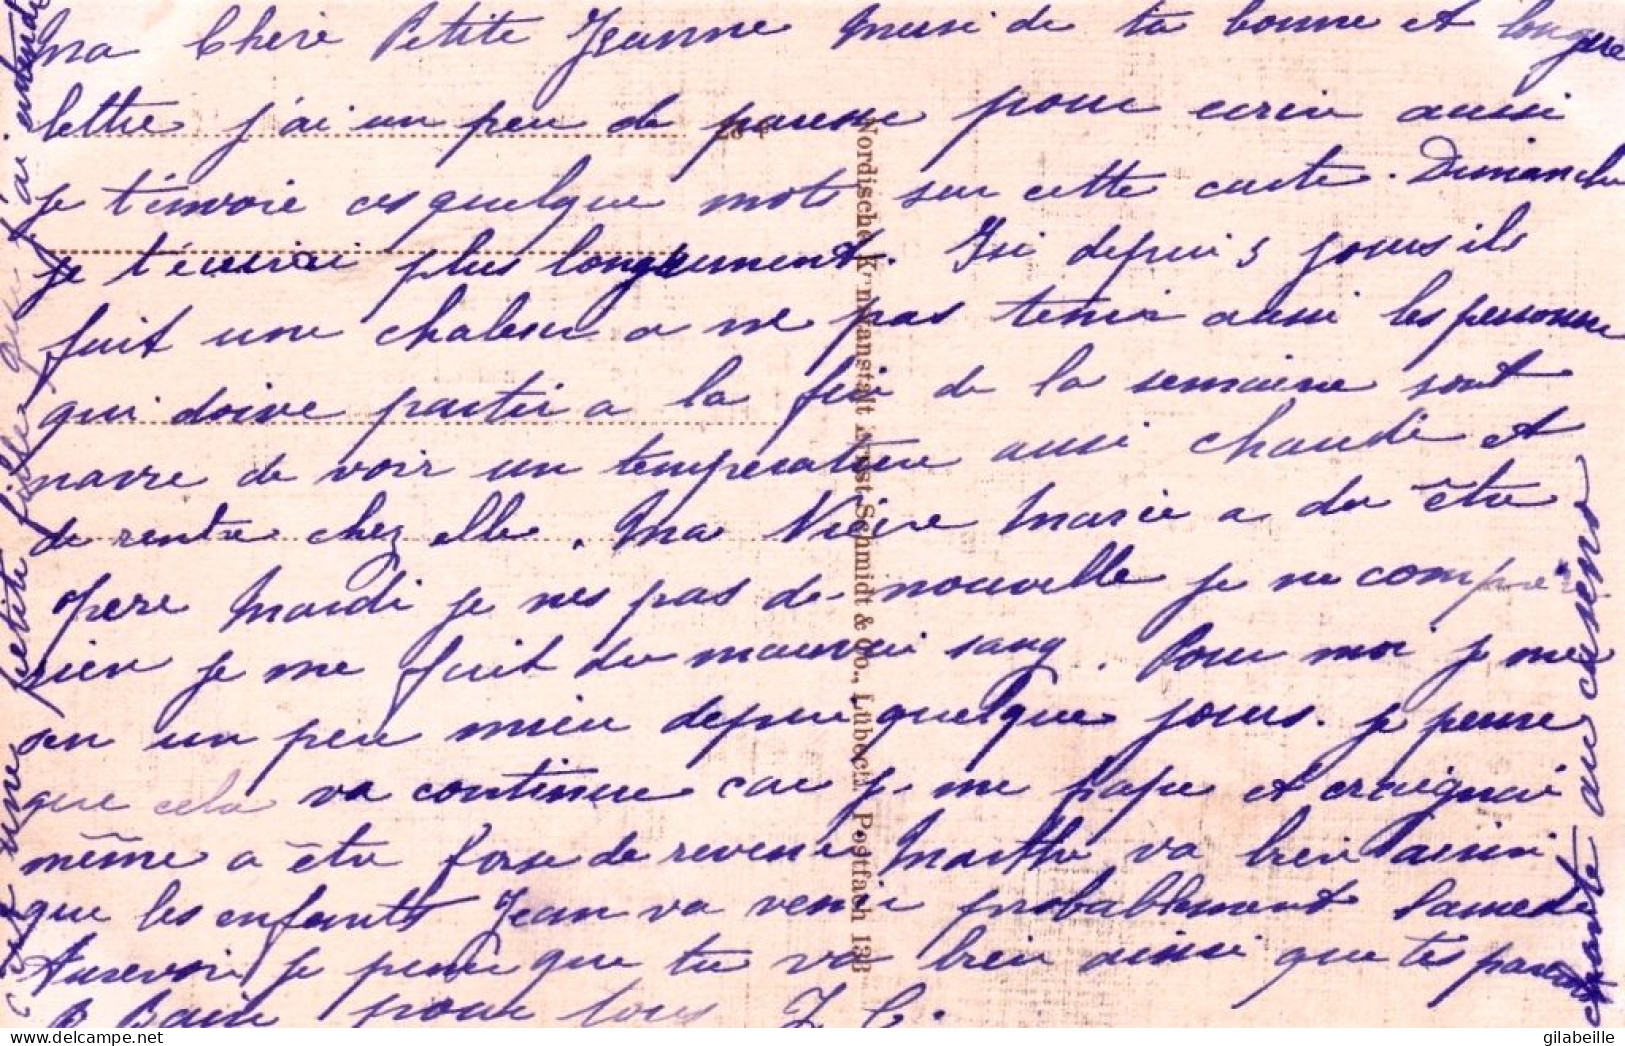 Ma Chère Petite Jeanne Merci de ta bonne et longue
lettre j'ai un peu de paresse pour ecrire aussi
je t'envoie ces quelque mots sur cette carte. Dimanche
je t'écrirai plus longuement. Ici depuis 3 jours ils
fait une chaleur a ne pas tenir aussi les personne
qui doive partir a la fin de la semaine sont
navre de voir un temperature aussi chaude et
de rentre chez elle. Ma Nièce Marie a du être
opere Mardi je nes pas de nouvelle je ne comprei
rien je me fait du mauvai sang. Pour moi je me
sen un peu mieu depui quelque jours. je pense
que cela va continuer car je me pape et craignai
même a être forse de revenir Marthe va bien ainsi
que les enfants Jean va venir probablement Samedi
Aurevoir je pense que tu va bien ainsi que tes parents
B Baiser pour tous J C.
c'est une petite fille que j'ai entendu
chante au casino
Nordische Kunstanstalt Ernst Schmidt & Co., Lübeck. Postfach 133
gilabeille